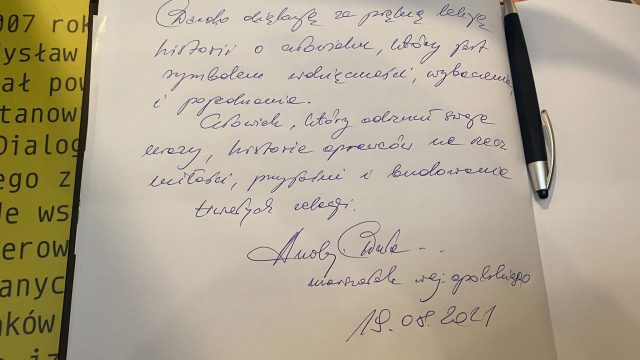 007 rok
dysław
ał pow
tanow
Dialog
ego z
de ws
erow
anych
nków
Bardzo dziękuję za piękną lekcję
historii o człowieku, który jest
symbolem wdzięczności, wybaczenia,
i pojednania.
Człowiek, który odrzucił swoje
urazy, historie oprawców na rzecz
miłości, przyjaźni i budowania
trwałych relacji.
Andrzej Buła
marszałek woj. opolskiego
19.08.2021